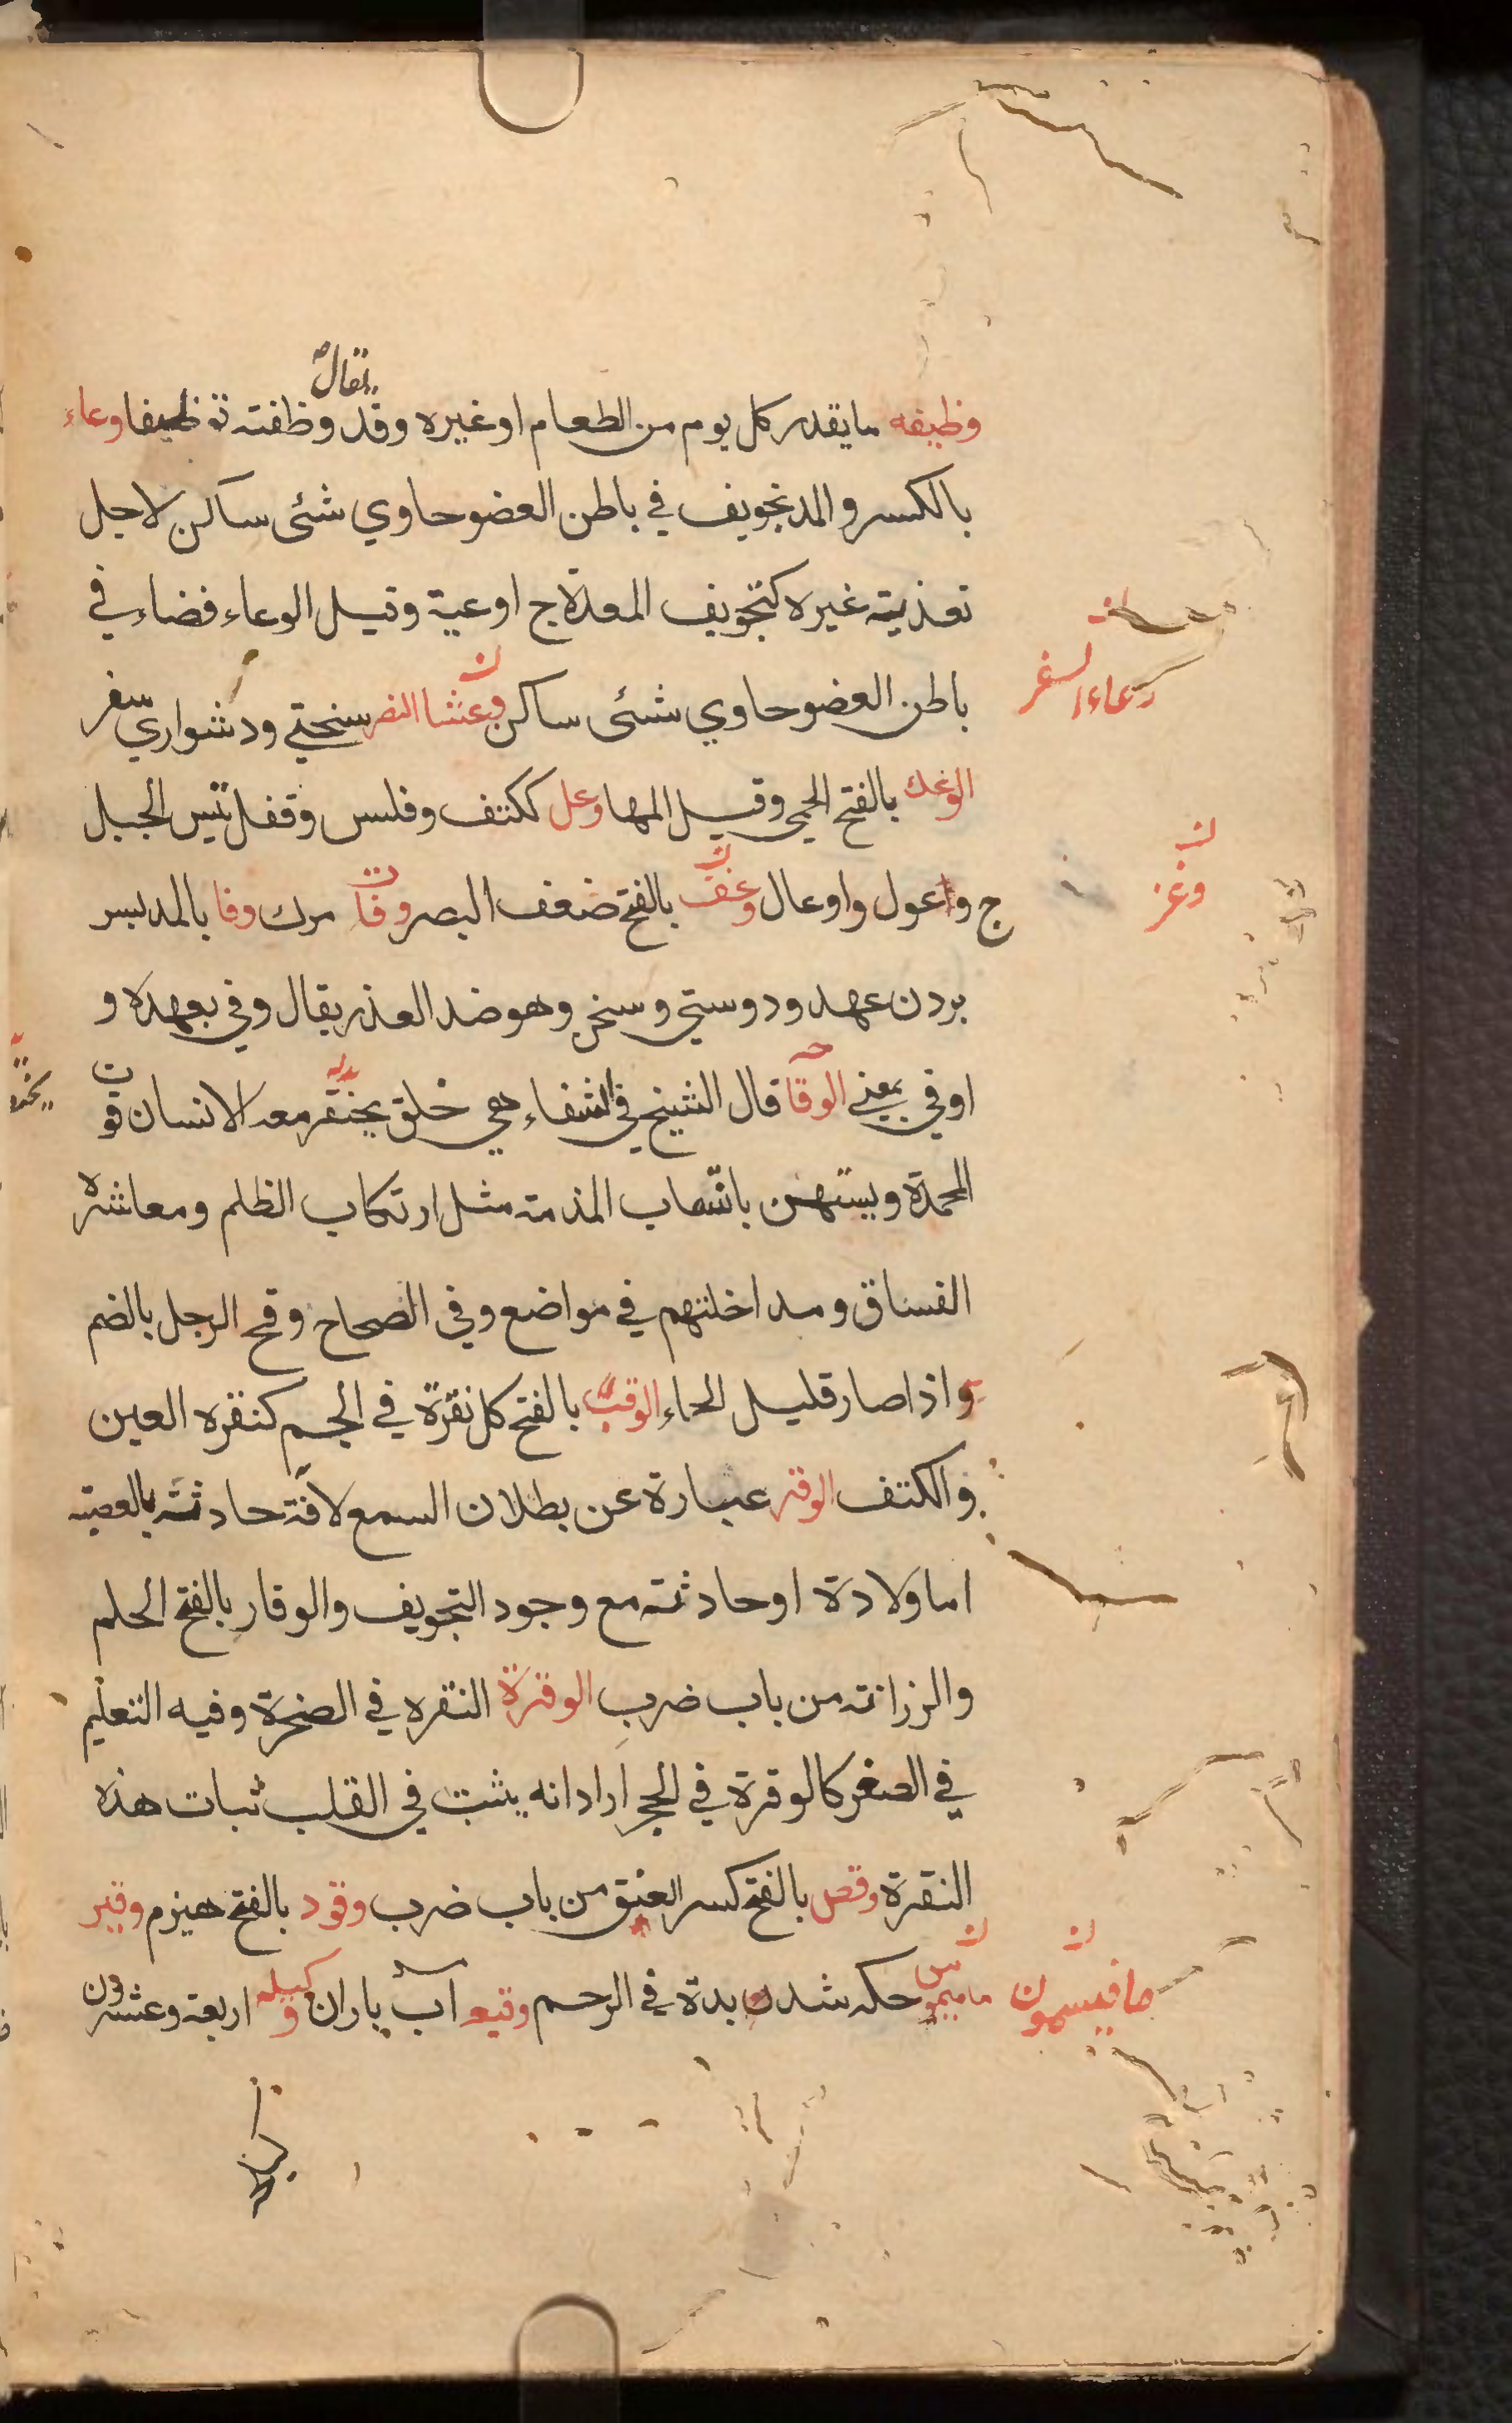 يقال
وظيفه ما يقدر كل يوم من الطعام او غيره وقد وظفته توظيفا وعاء
بالكسر والمد تجويف في باطن العضو حاوي شئى ساكن لاجل
تغذية غيره كتجويف المعدة ج اوعية وقيل الوعاء فضاء في
باطن العضو حاوي شئى ساكن وعثا السفر سختي ودشواري سفر
وعاء السغر
الوعك بالفتح الحمى وقيل المها وعل ككتف وفلس وقفل تيس الجبل
ج واعول واوعال وغف بالفتح ضعف البصر وفا مرك وفا بالمد بسر
وغر
بردن عهد ودوستي وسخن وهو ضد العذر يقال وفى بعهده و
اوفى بمعنى الوقا قال الشيخ في الشفاء هي خلق يحتقر معه الانسان فو
المحمدة ويستهين بانتهاب المذمة مثل ارتكاب الظلم ومعاشره
الفساق ومداخلتهم في مواضع وفي الصحاح وقح الرجل بالضم
واذا صار قليل الحياء الوقب بالفتح كل نقرة في الجسم كنقره العين
والكتف الوقر عبارة عن بطلان السمع لافة حادثة بالعصبة
اما ولادة او حادثة مع وجود التجويف والوقار بالفتح الحلم
والرزانة من باب ضرب الوقرة النقره في الصخرة وفيه التعليم
في الصغر كالوقرة في الحجر اراد انه يثبت في القلب ثبات هذه
النقرة وقص بالفتح كسر العنق من باب ضرب وقود بالفتح هيزم وقير
حكه شدن بدة في الرحم وقيع آب باران وكيله اربعة وعشرون